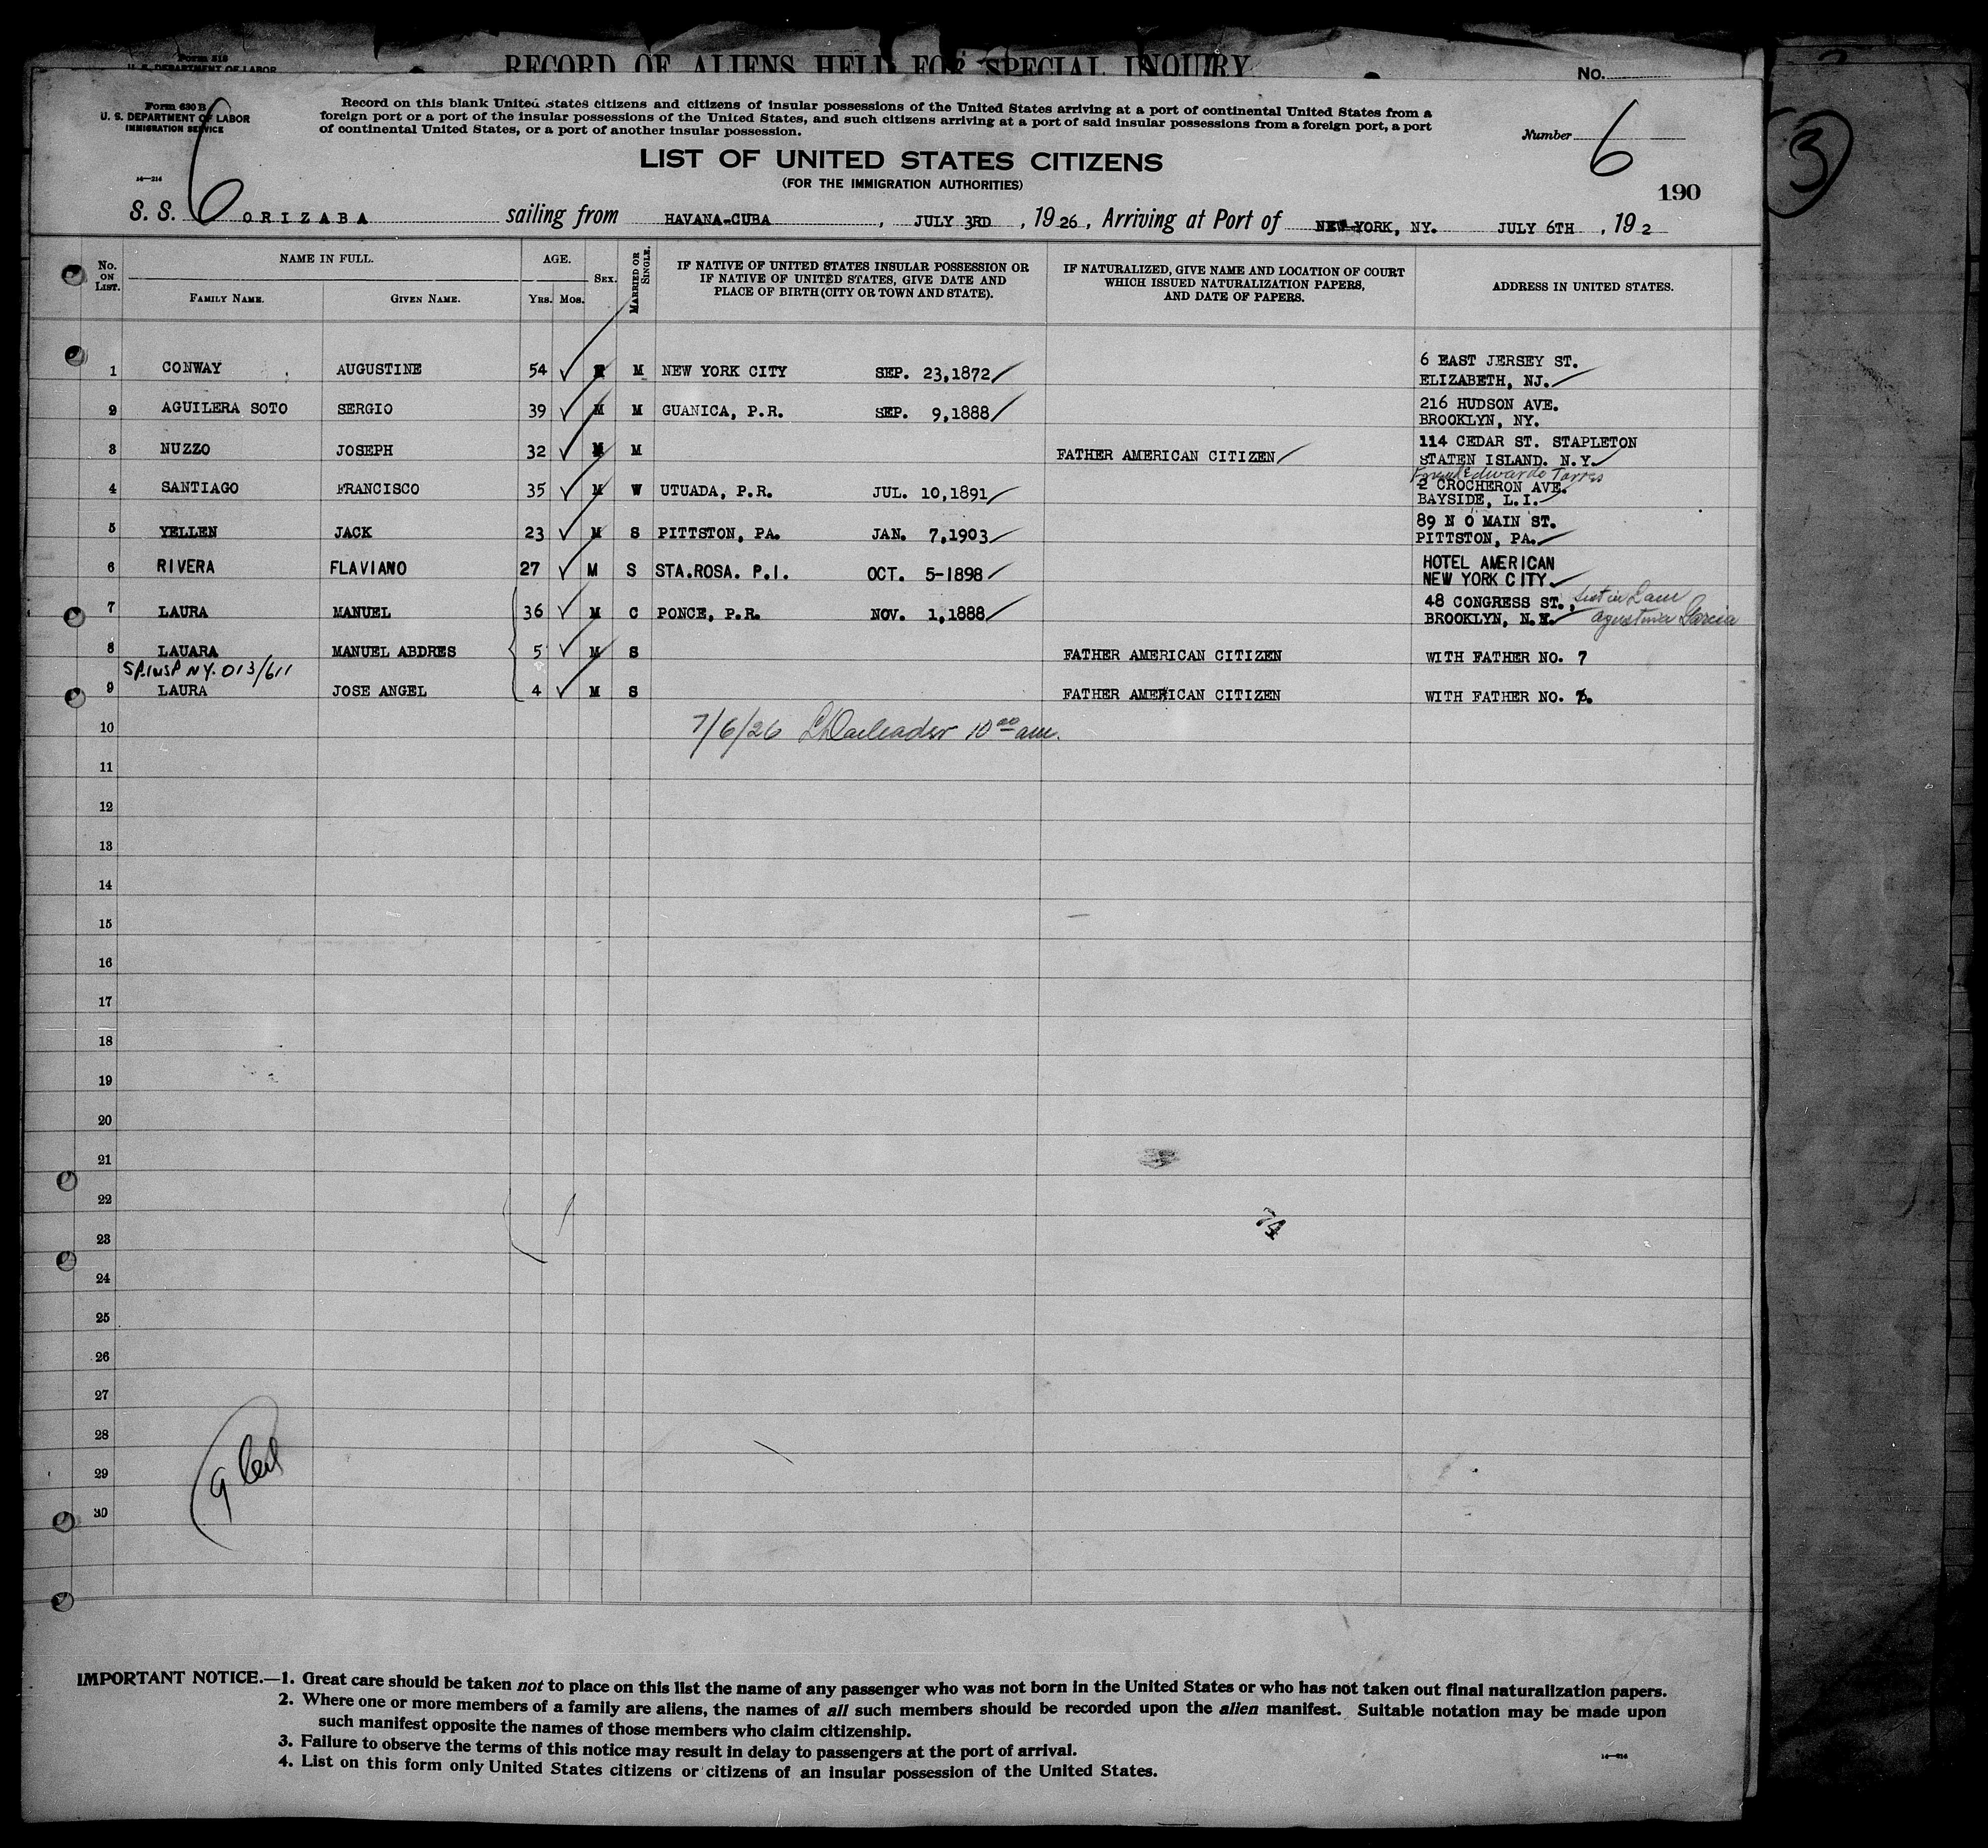 Form 518
U. S. DEPARTMENT OF LABOR
RECORD OF ALIENS HELD FOR SPECIAL INQUIRY
No.
3
Form 630 B
U. S. DEPARTMENT OF LABOR
IMMIGRATION SERVICE
6
Record on this blank United States citizens and citizens of insular possessions of the United States arriving at a port of continental United States from a
foreign port or a port of the insular possessions of the United States, and such citizens arriving at a port of said insular possessions from a foreign port, a port
of continental United States, or a port of another insular possession.
Number 6
LIST OF UNITED STATES CITIZENS
(FOR THE IMMIGRATION AUTHORITIES)
14—214
190
S. S. ORIZABA sailing from HAVANA-CUBA, JULY 3RD, 1926, Arriving at Port of NEW YORK, NY. JULY 6TH, 192
No. ON LIST. NAME IN FULL. AGE. SEX. MARRIED OR SINGLE. IF NATIVE OF UNITED STATES INSULAR POSSESSION OR IF NATIVE OF UNITED STATES, GIVE DATE AND PLACE OF BIRTH (CITY OR TOWN AND STATE). IF NATURALIZED, GIVE NAME AND LOCATION OF COURT WHICH ISSUED NATURALIZATION PAPERS, AND DATE OF PAPERS. ADDRESS IN UNITED STATES.
FAMILY NAME. GIVEN NAME. YRS. MOS.
1 CONWAY AUGUSTINE 54 M M NEW YORK CITY SEP. 23,1872 6 EAST JERSEY ST.
ELIZABETH, NJ.
2 AGUILERA SOTO SERGIO 39 M M GUANICA, P.R. SEP. 9,1888 216 HUDSON AVE.
BROOKLYN, NY.
3 NUZZO JOSEPH 32 M M FATHER AMERICAN CITIZEN 114 CEDAR ST. STAPLETON
STATEN ISLAND. N.Y.
Friend Edwardo Torres
4 SANTIAGO FRANCISCO 35 M W UTUADA, P.R. JUL. 10,1891 2 CROCHERON AVE.
BAYSIDE, L.I.
5 YELLEN JACK 23 M S PITTSTON, PA. JAN. 7,1903 89 N O MAIN ST.
PITTSTON, PA.
6 RIVERA FLAVIANO 27 M S STA.ROSA. P.I. OCT. 5-1898 HOTEL AMERICAN
NEW YORK CITY
7 LAURA MANUEL 36 M C PONCE, P.R. NOV. 1,1888 48 CONGRESS ST., Sist in Law
BROOKLYN, N.Y. Agustina Garcia
8 LAUARA MANUEL ABDRES 5 M S FATHER AMERICAN CITIZEN WITH FATHER NO. 7
SP.INSP NY. 013/611
9 LAURA JOSE ANGEL 4 M S FATHER AMERICAN CITIZEN WITH FATHER NO. 7.
10 7/6/26 10 00 am.
11
12
13
14
15
16
17
18
19
20
21
22
23
24
25
26
27
28
29
30
IMPORTANT NOTICE.—1. Great care should be taken not to place on this list the name of any passenger who was not born in the United States or who has not taken out final naturalization papers.
2. Where one or more members of a family are aliens, the names of all such members should be recorded upon the alien manifest. Suitable notation may be made upon
such manifest opposite the names of those members who claim citizenship.
3. Failure to observe the terms of this notice may result in delay to passengers at the port of arrival.
4. List on this form only United States citizens or citizens of an insular possession of the United States.
14—214